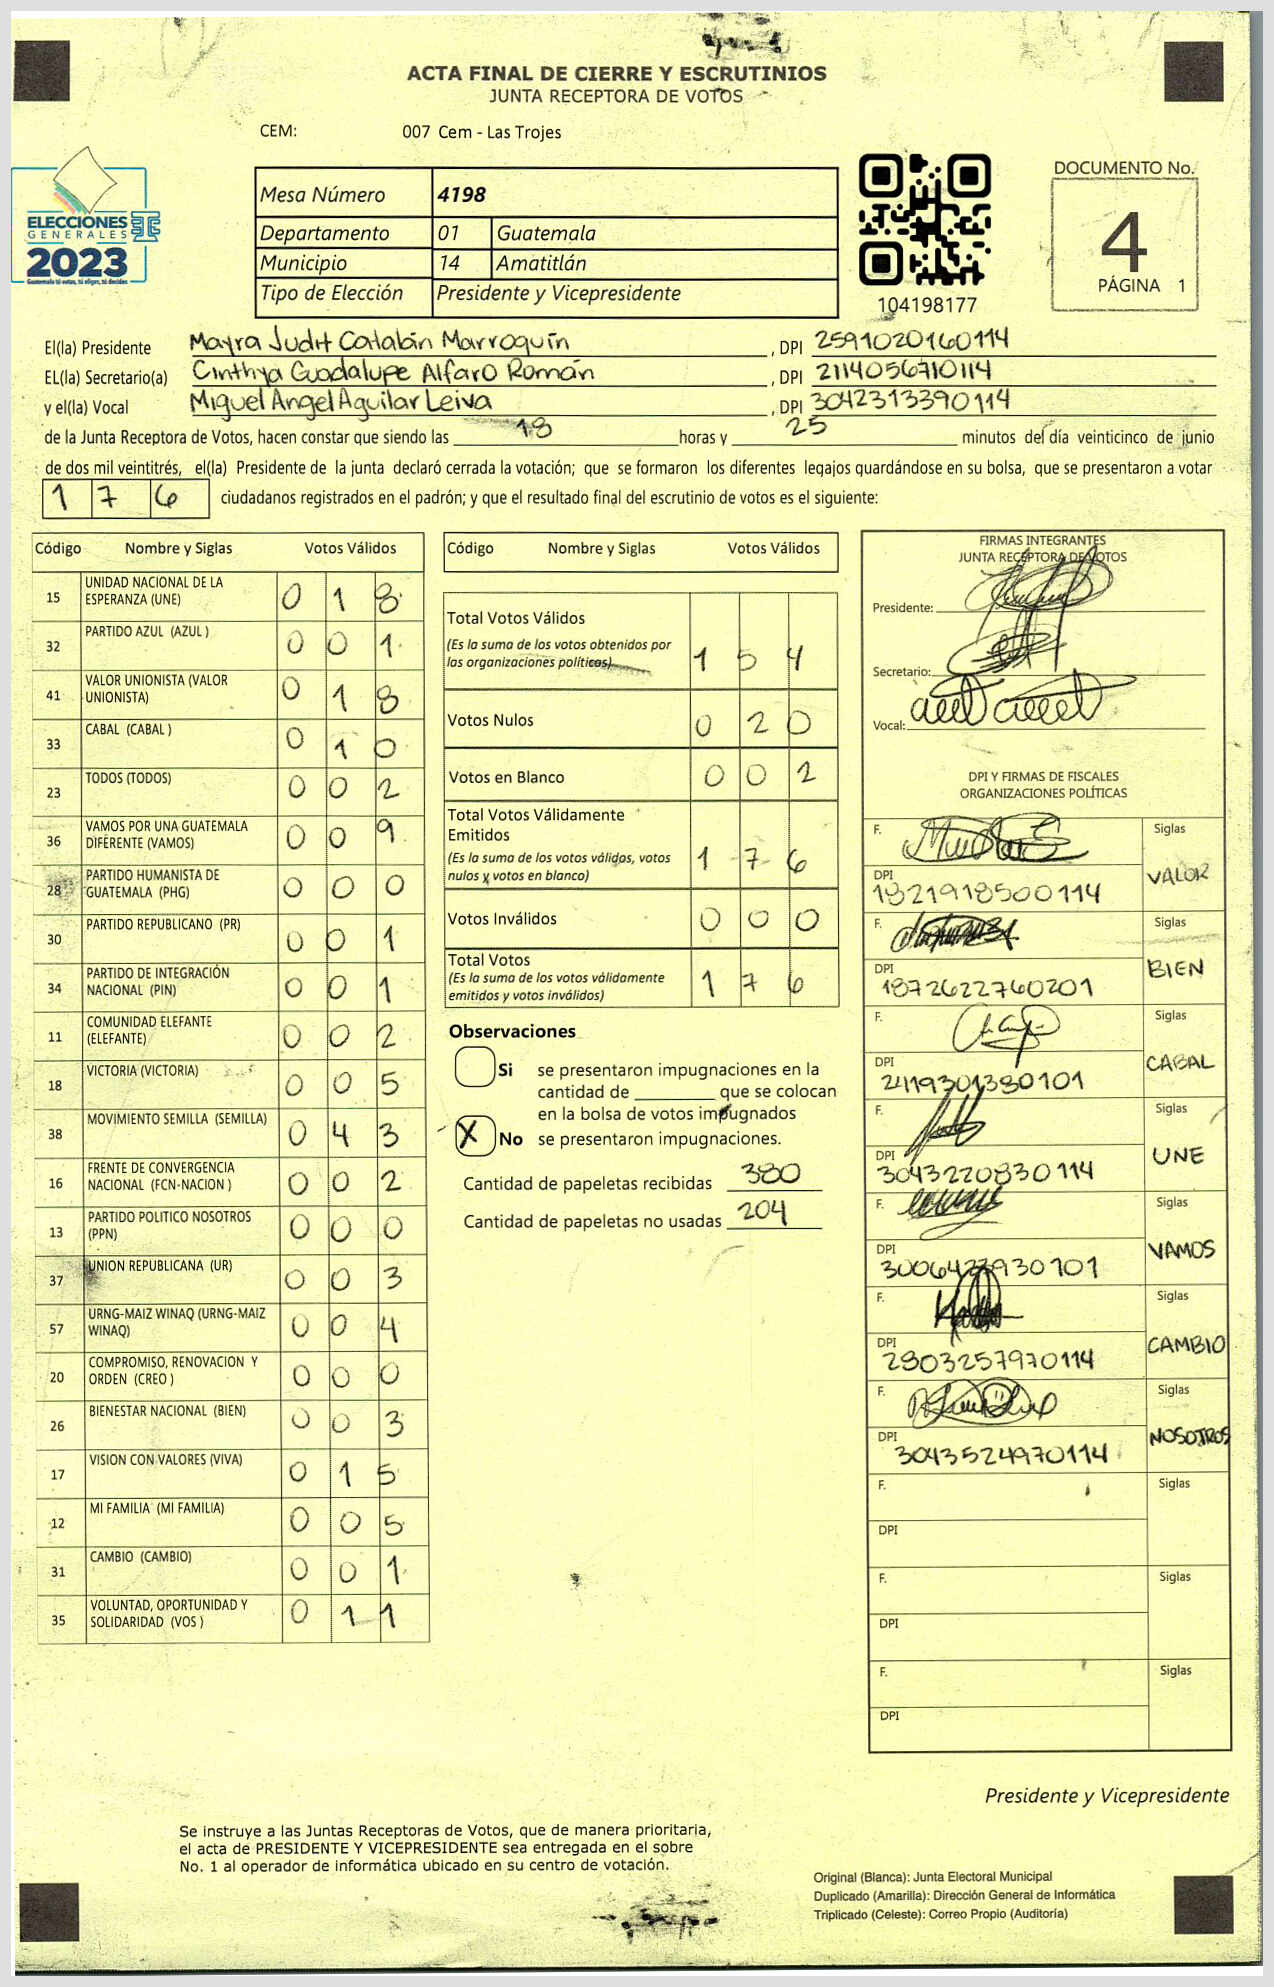 ACTA FINAL DE CIERRE Y ESCRUTINIOS
JUNTA RECEPTORA DE VOTOS
CEM: 007 Cem - Las Trojes
ELECCIONES
GENERALES
2023
Guatemala tú votas, tú eliges, tú decides
Mesa Número 4198
Departamento 01 Guatemala
Municipio 14 Amatitlán
Tipo de Elección Presidente y Vicepresidente
104198177
DOCUMENTO No.
4
PÁGINA 1
El(la) Presidente Mayra Judit Catalán Marroquín, DPI 2591020160114
EL(la) Secretario(a) Cinthya Guadalupe Alfaro Román, DPI 2114056710114
y el(la) Vocal Miguel Angel Aguilar Leiva, DPI 3042313390114
de la Junta Receptora de Votos, hacen constar que siendo las 18 horas y 25 minutos del día veinticinco de junio
de dos mil veintitrés, el(la) Presidente de la junta declaró cerrada la votación; que se formaron los diferentes legajos guardándose en su bolsa, que se presentaron a votar
176 ciudadanos registrados en el padrón; y que el resultado final del escrutinio de votos es el siguiente:
Código Nombre y Siglas Votos Válidos
15 UNIDAD NACIONAL DE LA ESPERANZA (UNE) 0 1 8
32 PARTIDO AZUL (AZUL ) 0 0 1
41 VALOR UNIONISTA (VALOR UNIONISTA) 0 1 8
33 CABAL (CABAL ) 0 1 0
23 TODOS (TODOS) 0 0 2
36 VAMOS POR UNA GUATEMALA DIFERENTE (VAMOS) 0 0 9
28 PARTIDO HUMANISTA DE GUATEMALA (PHG) 0 0 0
30 PARTIDO REPUBLICANO (PR) 0 0 1
34 PARTIDO DE INTEGRACIÓN NACIONAL (PIN) 0 0 1
11 COMUNIDAD ELEFANTE (ELEFANTE) 0 0 2
18 VICTORIA (VICTORIA) 0 0 5
38 MOVIMIENTO SEMILLA (SEMILLA) 0 4 3
16 FRENTE DE CONVERGENCIA NACIONAL (FCN-NACION ) 0 0 2
13 PARTIDO POLITICO NOSOTROS (PPN) 0 0 0
37 UNION REPUBLICANA (UR) 0 0 3
57 URNG-MAIZ WINAQ (URNG-MAIZ WINAQ) 0 0 4
20 COMPROMISO, RENOVACION Y ORDEN (CREO ) 0 0 0
26 BIENESTAR NACIONAL (BIEN) 0 0 3
17 VISION CON VALORES (VIVA) 0 1 5
12 MI FAMILIA (MI FAMILIA) 0 0 5
31 CAMBIO (CAMBIO) 0 0 1
35 VOLUNTAD, OPORTUNIDAD Y SOLIDARIDAD (VOS ) 0 1 1
Código Nombre y Siglas Votos Válidos
Total Votos Válidos
(Es la suma de los votos obtenidos por
las organizaciones políticas) 1 5 4
Votos Nulos 0 2 0
Votos en Blanco 0 0 2
Total Votos Válidamente
Emitidos
(Es la suma de los votos válidos, votos
nulos y votos en blanco) 1 7 6
Votos Inválidos 0 0 0
Total Votos
(Es la suma de los votos válidamente
emitidos y votos inválidos) 1 7 6
Observaciones
Si se presentaron impugnaciones en la
cantidad de ________ que se colocan
en la bolsa de votos impugnados
X No se presentaron impugnaciones.
Cantidad de papeletas recibidas 380
Cantidad de papeletas no usadas 204
FIRMAS INTEGRANTES
JUNTA RECEPTORA DE VOTOS
Presidente:
Secretario:
Vocal:
DPI Y FIRMAS DE FISCALES
ORGANIZACIONES POLÍTICAS
F. Siglas
DPI 1821918500114 VALOR
F. Siglas
DPI 1872622760201 BIEN
F. Siglas
DPI 2419301380101 CABAL
F. Siglas
DPI 3043220830114 UNE
F. Siglas
DPI VAMOS
F. Siglas
DPI 2803257970114 CAMBIO
F. Siglas
DPI 3043524970114 NOSOTROS
F. Siglas
DPI
F. Siglas
DPI
F. Siglas
DPI
Presidente y Vicepresidente
Se instruye a las Juntas Receptoras de Votos, que de manera prioritaria,
el acta de PRESIDENTE Y VICEPRESIDENTE sea entregada en el sobre
No. 1 al operador de informática ubicado en su centro de votación.
Original (Blanca): Junta Electoral Municipal
Duplicado (Amarilla): Dirección General de Informática
Triplicado (Celeste): Correo Propio (Auditoría)